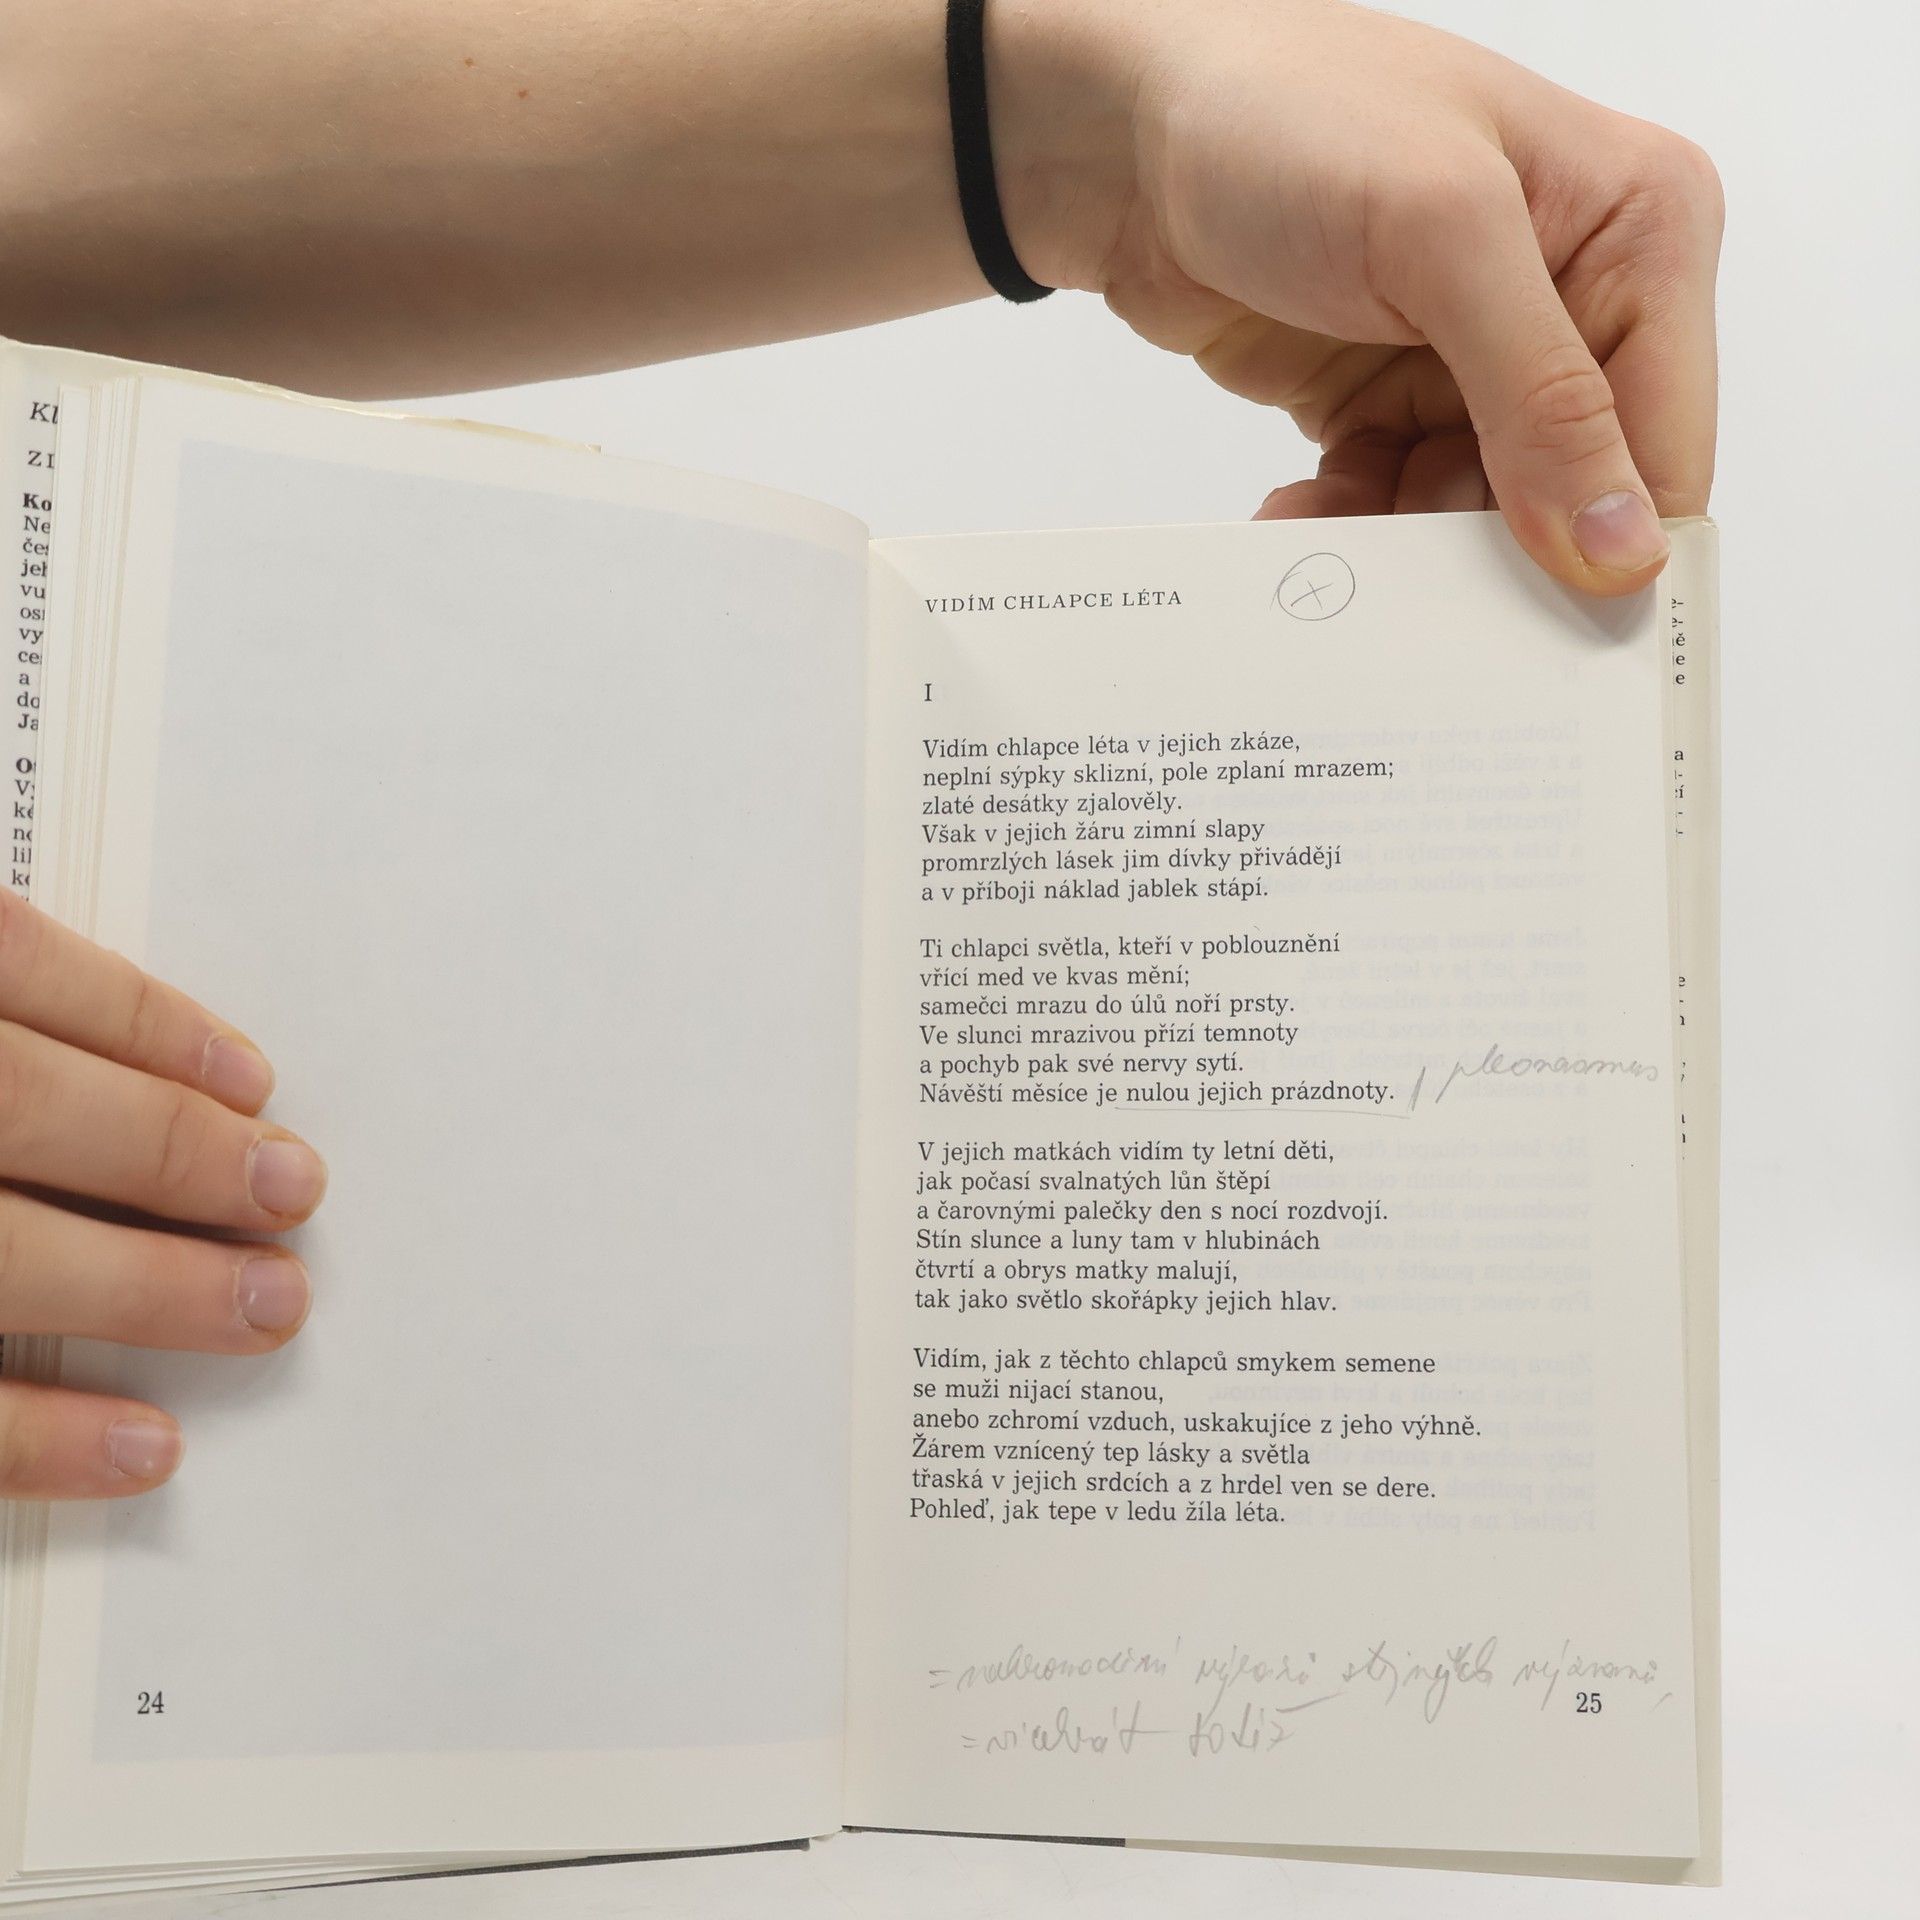 Kl
ZI
Ko
Ne
jeh
vu
vy
a
do
24
VIDÍM CHLAPCE LÉTA
I
Vidím chlapce léta v jejich zkáze,
neplní sýpky sklizní, pole zplaní mrazem;
zlaté desátky zjalověly.
Však v jejich žáru zimní slapy
promrzlých lásek jim dívky přivádějí
a v příboji náklad jablek stápí.
Ti chlapci světla, kteří v poblouznění
vřící med ve kvas mění;
samečci mrazu do úlů noří prsty.
Ve slunci mrazivou přízí temnoty
a pochyb pak své nervy sytí.
Návěští měsíce je nulou jejich prázdnoty.
pleonasmus
V jejich matkách vidím ty letní děti,
jak počasí svalnatých lůn štěpí
a čarovnými palečky den s nocí rozdvojí.
Stín slunce a luny tam v hlubinách
čtvrtí a obrys matky malují,
tak jako světlo skořápky jejich hlav.
Vidím, jak z těchto chlapců smykem semene
se muži nijací stanou,
anebo zchromí vzduch, uskakujíce z jeho výhně.
Žárem vznícený tep lásky a světla
třaská v jejich srdcích a z hrdel ven se dere.
Pohleď, jak tepe v ledu žíla léta.
stejných
= vícekrát totéž
25